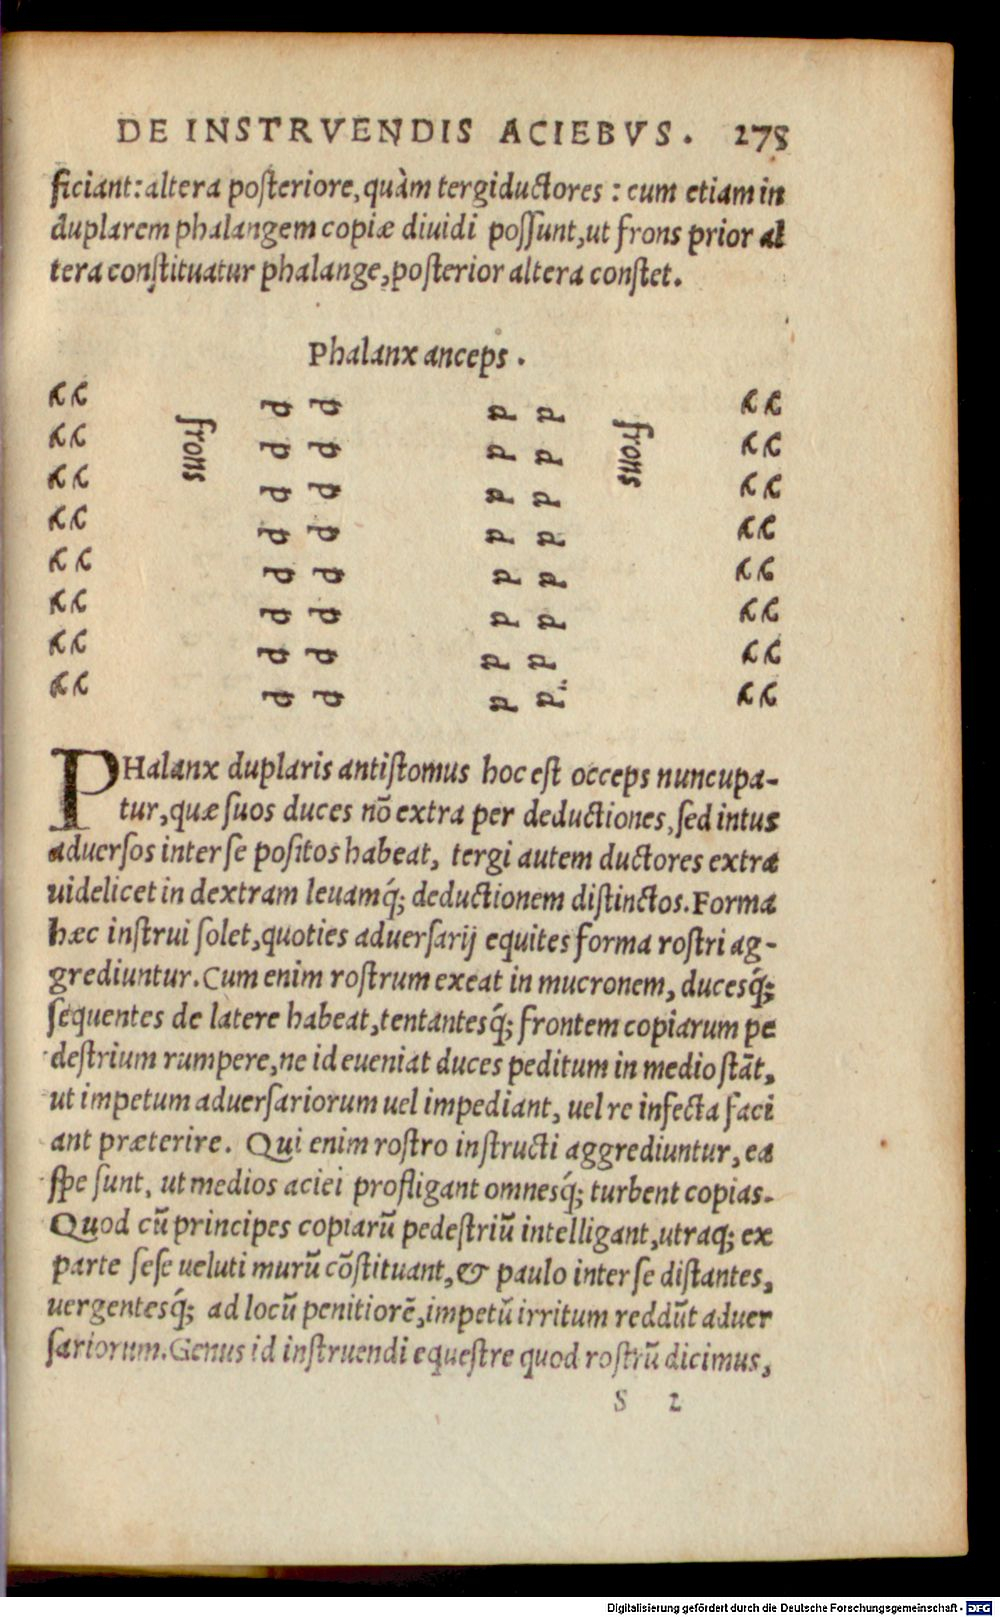 DE INSTRVENDIS ACIEBVS. 278
ficiant: altera posteriore, quàm tergiductores : cum etiam in
duplarem phalangem copiæ diuidi possunt, ut frons prior al
tera constituatur phalange, posterior altera constet.
Phalanx anceps.
frons
frons
PHalanx duplaris antistomus hoc est occeps nuncupa-
tur, quæ suos duces nõ extra per deductiones, sed intus
aduersos inter se positos habeat, tergi autem ductores extra
uidelicet in dextram leuamq́; deductionem distinctos. Forma
hæc instrui solet, quoties aduersarij equites forma rostri ag-
grediuntur. Cum enim rostrum exeat in mucronem, ducesq́;
sequentes de latere habeat, tentantesq́; frontem copiarum pe
destrium rumpere, ne id eueniat duces peditum in medio stãt,
ut impetum aduersariorum uel impediant, uel re infecta faci
ant præterire. Qui enim rostro instructi aggrediuntur, ea
spe sunt, ut medios aciei profligant omnesq́; turbent copias.
Quod cũ principes copiarũ pedestriũ intelligant, utraq; ex
parte sese ueluti murũ cõstituant, & paulo inter se distantes,
uergentesq́; ad locũ penitiorẽ, impetũ irritum reddũt aduer
sariorum. Genus id instruendi equestre quod rostrũ dicimus,
S 2
Digitalisierung gefördert durch die Deutsche Forschungsgemeinschaft - DFG